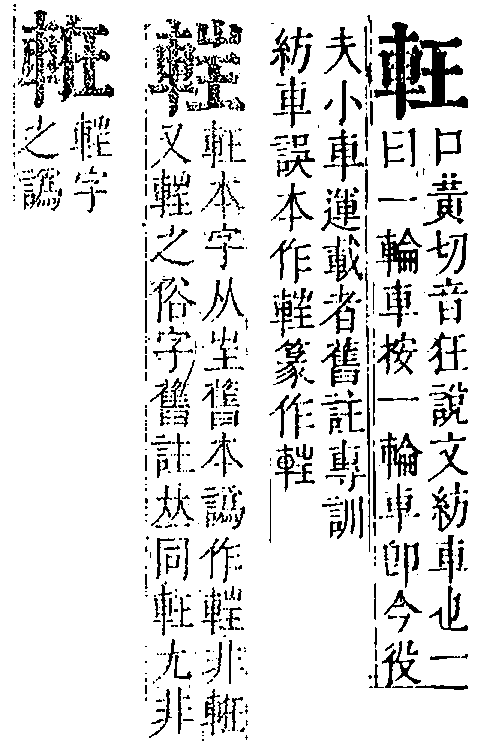 軖
口黃切音狂說文紡車也一
曰一輪車按一輪車卽今役
夫小車運載者舊註專訓
紡車誤本作軠篆作
軖本字从㞷舊本譌作軠非軭
又軠之俗字舊註𠀤同軖尤非
軠字
之譌